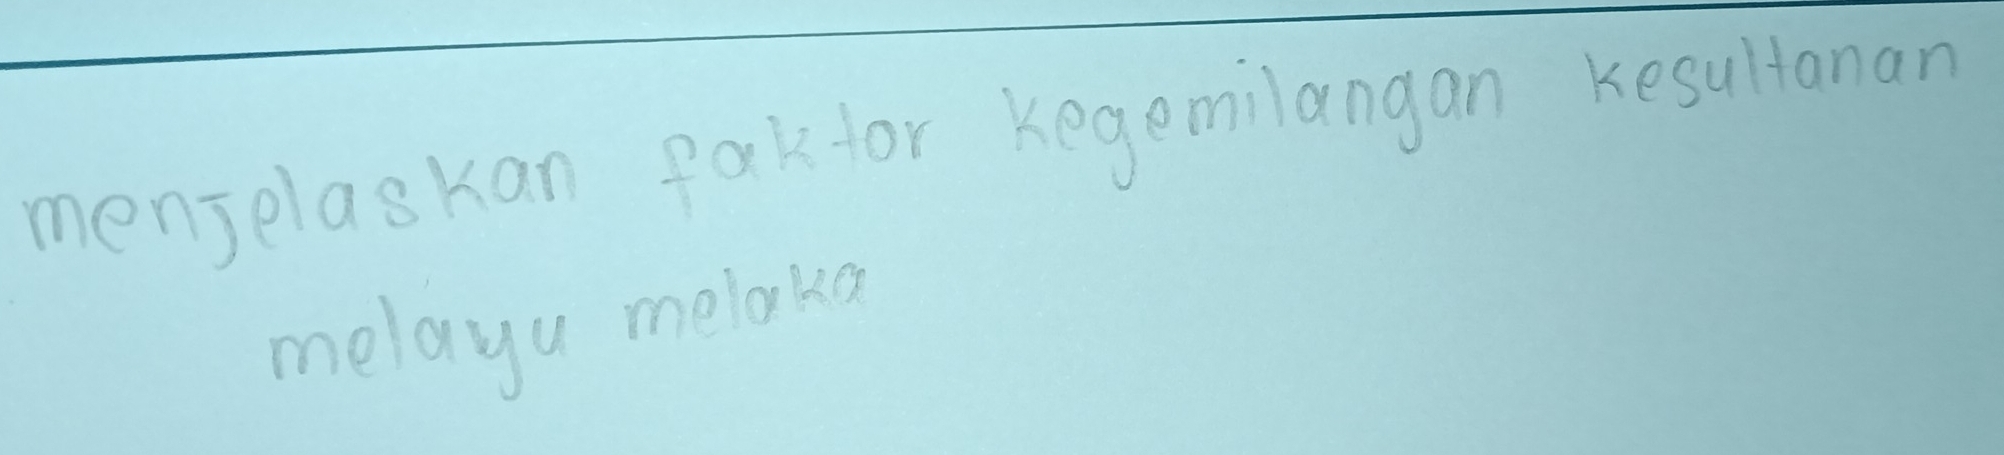 menjelaskan faktor kegemilangan kesultanan
melayu melaka